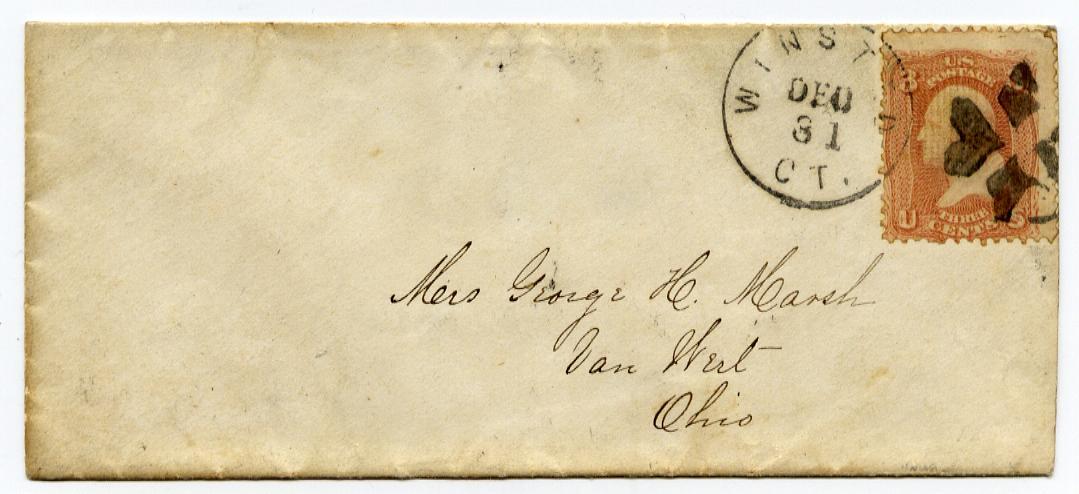 WINSTED
DEC
31
CT.
3 3
U.S.
POSTAGE
U S
THREE
CENTS
Mrs George H. Marsh
Van Wert
Ohio